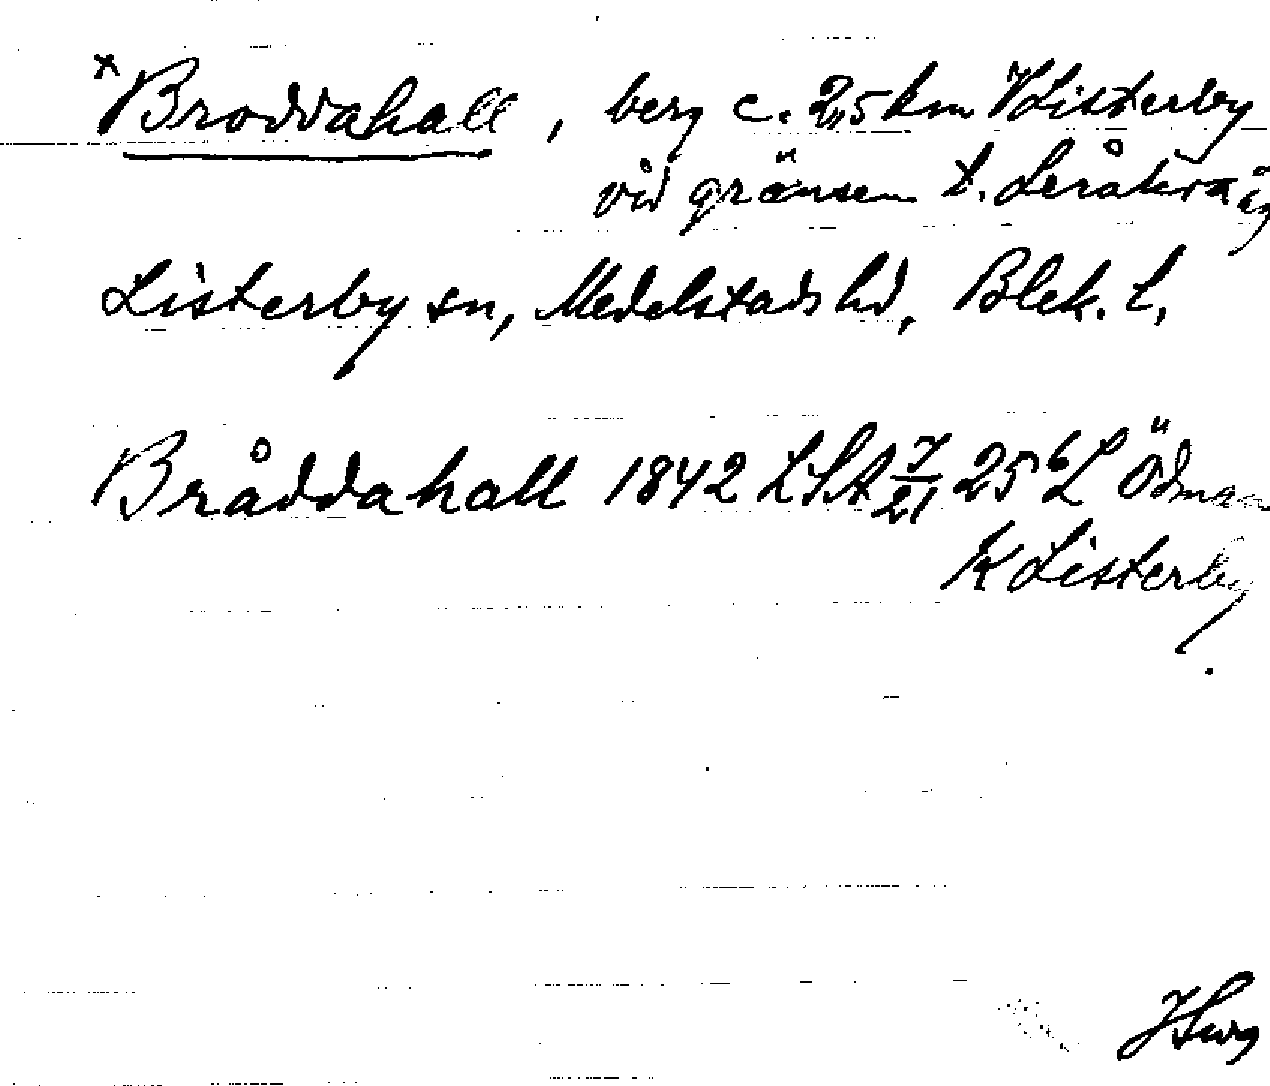 × Broddahall, berg c. 2,5 km V Listerby
vid gränsen t. Leråkra äg
Listerby sn, Medelstads hd, Blek. l.
Bråddahall 1842 LSA 7/21 25 L Ödman
K Listerby